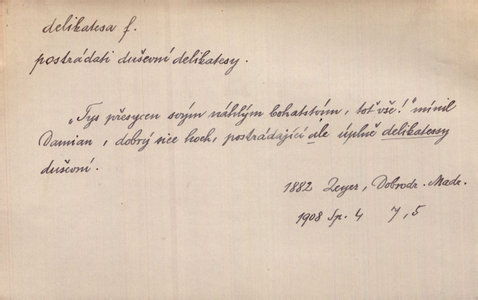 delikatesa f.
postrádati duševní delikatesy.
„Tys přesycen svým náhlým bohatstvím, toť vše!" mínil
Damian, dobrý sice hoch, postrádající ale úplně delikatessy
duševní.
1882 Zeyer, Dobrodr. Madr.
1908 Sp. 4 7,5